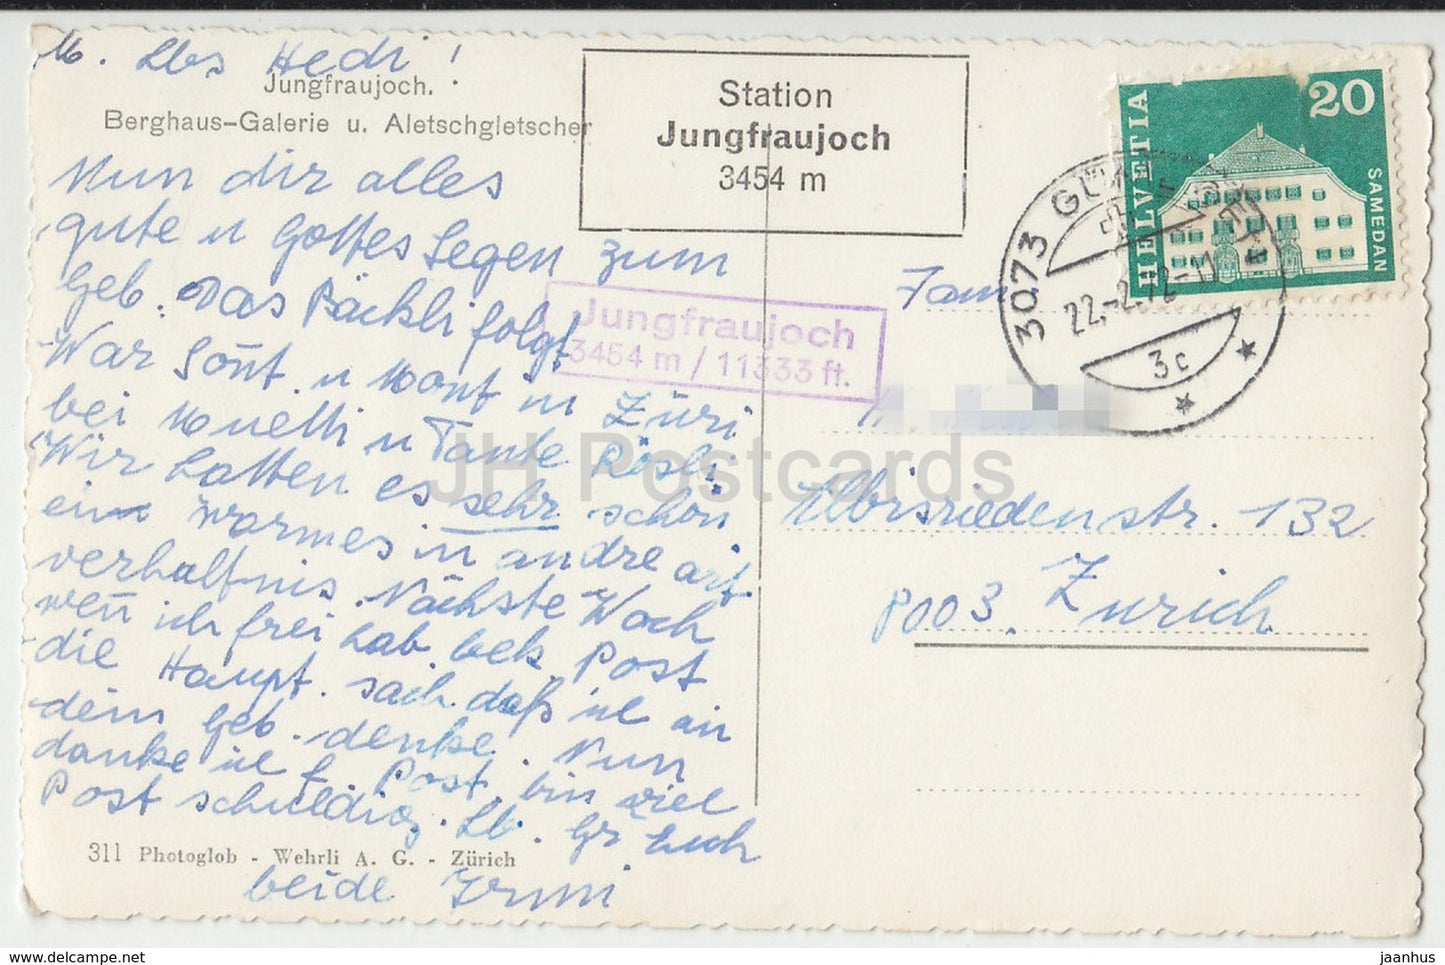 M. Lbs Hedi!
Jungfraujoch.
Berghaus-Galerie u. Aletschgletscher
Nun dir alles
gute u Gottes Segen zum
Geb. Das Päckli folgt
War Soñt. u Mont in Züri
bei Muetti u Tante Rösli.
Wir hatten es sehr schön
ein warmes in andre art
verhaltnis. Nächste Woch
weñ ich frei hab. bek. Post
die Haupt. sach. daß ich an
dein Geb. denke. Nun
danke ich f. Post, bin viel
Post schuldig. Lb. Gr Euch
beide Irmi
311 Photoglob - Wehrli A. G. - Zürich
Station
Jungfraujoch
3454 m
Jungfraujoch
3454 m / 11333 ft.
HELVETIA
20
SAMEDAN
3073
22.-2.72-11
3c
Fam
Albisriedenstr. 132
8003. Zürich
JH Postcards
www.delcampe.net
jaanhus